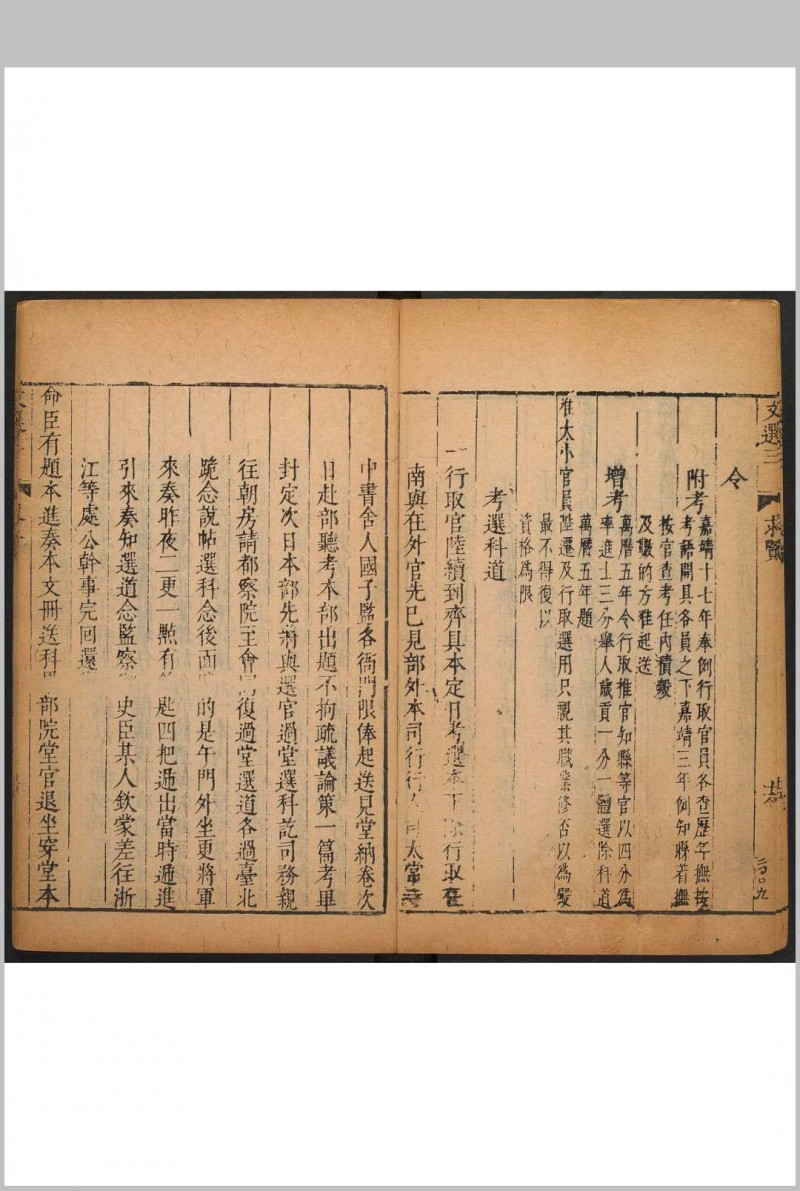 文選三
求賢
三百九
令
附考
嘉靖十七年奉例行取官員各查歷年撫按
考語開具各員之下嘉靖三年例知縣着撫
按官查考任內積穀
及數的方准起送
增考
萬曆五年令行取推官知縣等官以四分爲
率進士三分舉人歲貢一分一體選除科道
萬曆五年題
准太小官員陞遷及行取選用只視其職業修否以爲殿
最不得復以
資格爲限
考選科道
一行取官陸續到齊具本定日考選本下 行取在
南與在外官先已見部外本司行行人司太常寺
中書舍人國子監各衙門限俸起送見堂納卷次
日赴部聽考本部出題不拘疏議論第一篇考畢
封定次日本部先將與選官過堂選科訖司務親
往朝房請都察院至會 復過堂選道各過臺北
跪念說帖選科念後面 的是午門外坐更將軍
來奏昨夜二更一點有 匙四把遞出當時遞進
引來奏知選道念監察 史臣某人欽蒙差往浙
江等處公幹事完回還
命臣有題本進奏本文冊送科 部院堂官退坐穿堂本